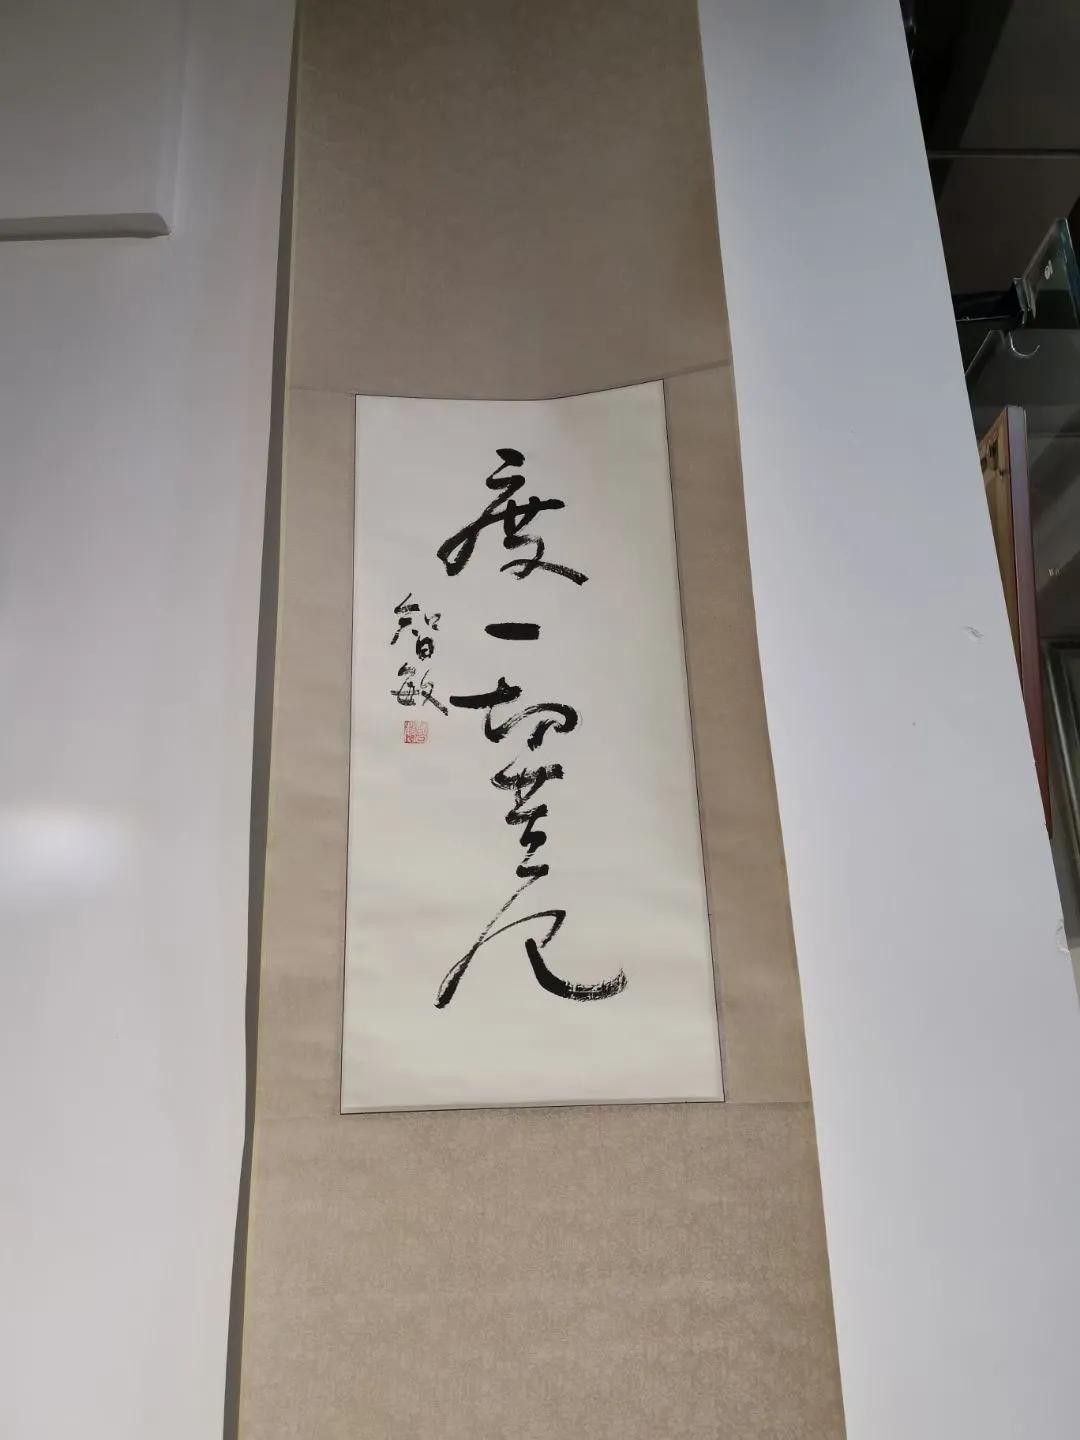 度一切苦厄
智敏